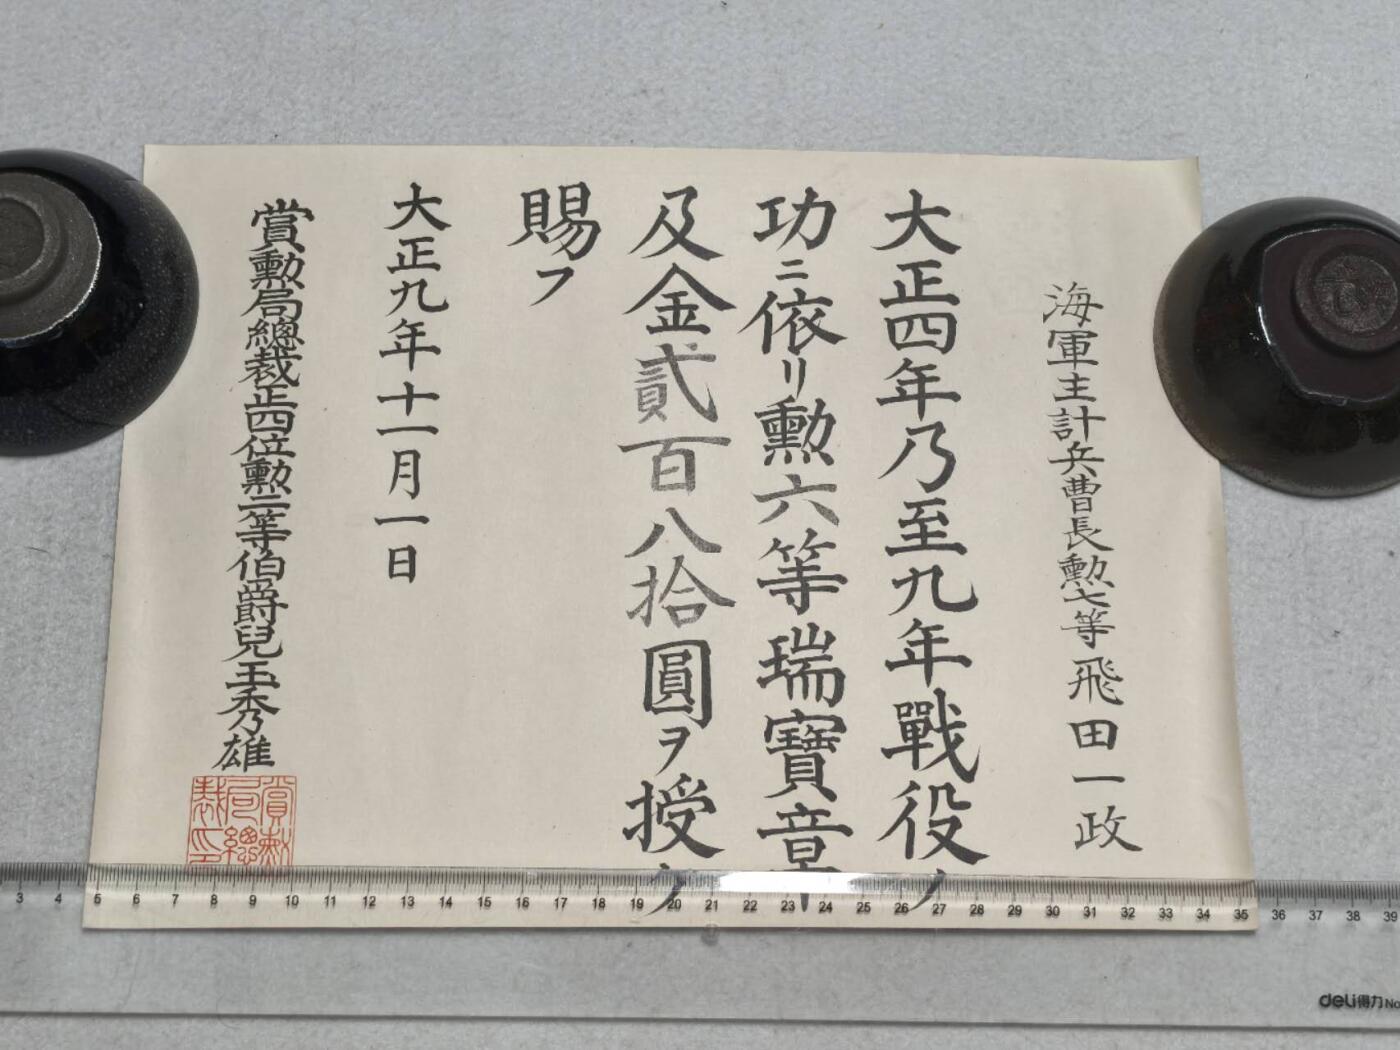 海軍主計兵曹長勲七等飛田一政
大正四年乃至九年戰役ノ
功ニ依リ勲六等瑞寶章
及金貳百八拾圓ヲ授ケ
賜フ
大正九年十一月一日
賞勲局總裁正四位勲二等伯爵兒玉秀雄
賞勲
局總
裁印
3 4 5 6 7 8 9 10 11 12 13 14 15 16 17 18 19 20 21 22 23 24 25 26 27 28 29 30 31 32 33 34 35 36 37 38 39
deli得力 No